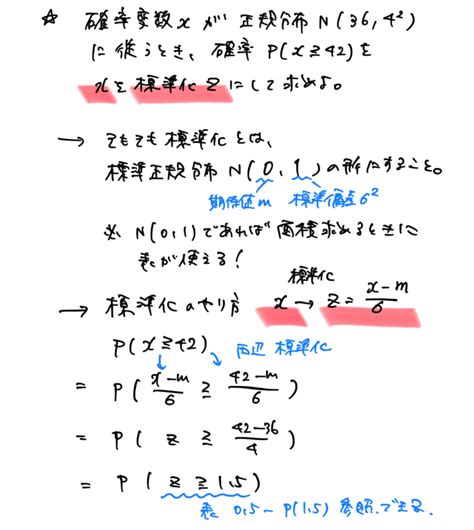 ☆ 確率変数 x が 正規分布 N(36, 4²)
に従うとき、確率 P(x≧42)を
xを標準化 zにして求めよ。
→ そもそも標準化とは、
標準正規分布 N(0, 1)の形にすること。
期待値m 標準偏差σ²
※ N(0,1)であれば面積求めるときに
表が使える!
標準化
→ 標準化のやり方 x → z = x-m/σ
P(x≧42) 両辺 標準化
= P( x-m/σ ≧ 42-m/σ )
= P( z ≧ 42-36/4 )
= P( z ≧ 1.5 )
表 0.5-P(1.5) 参照